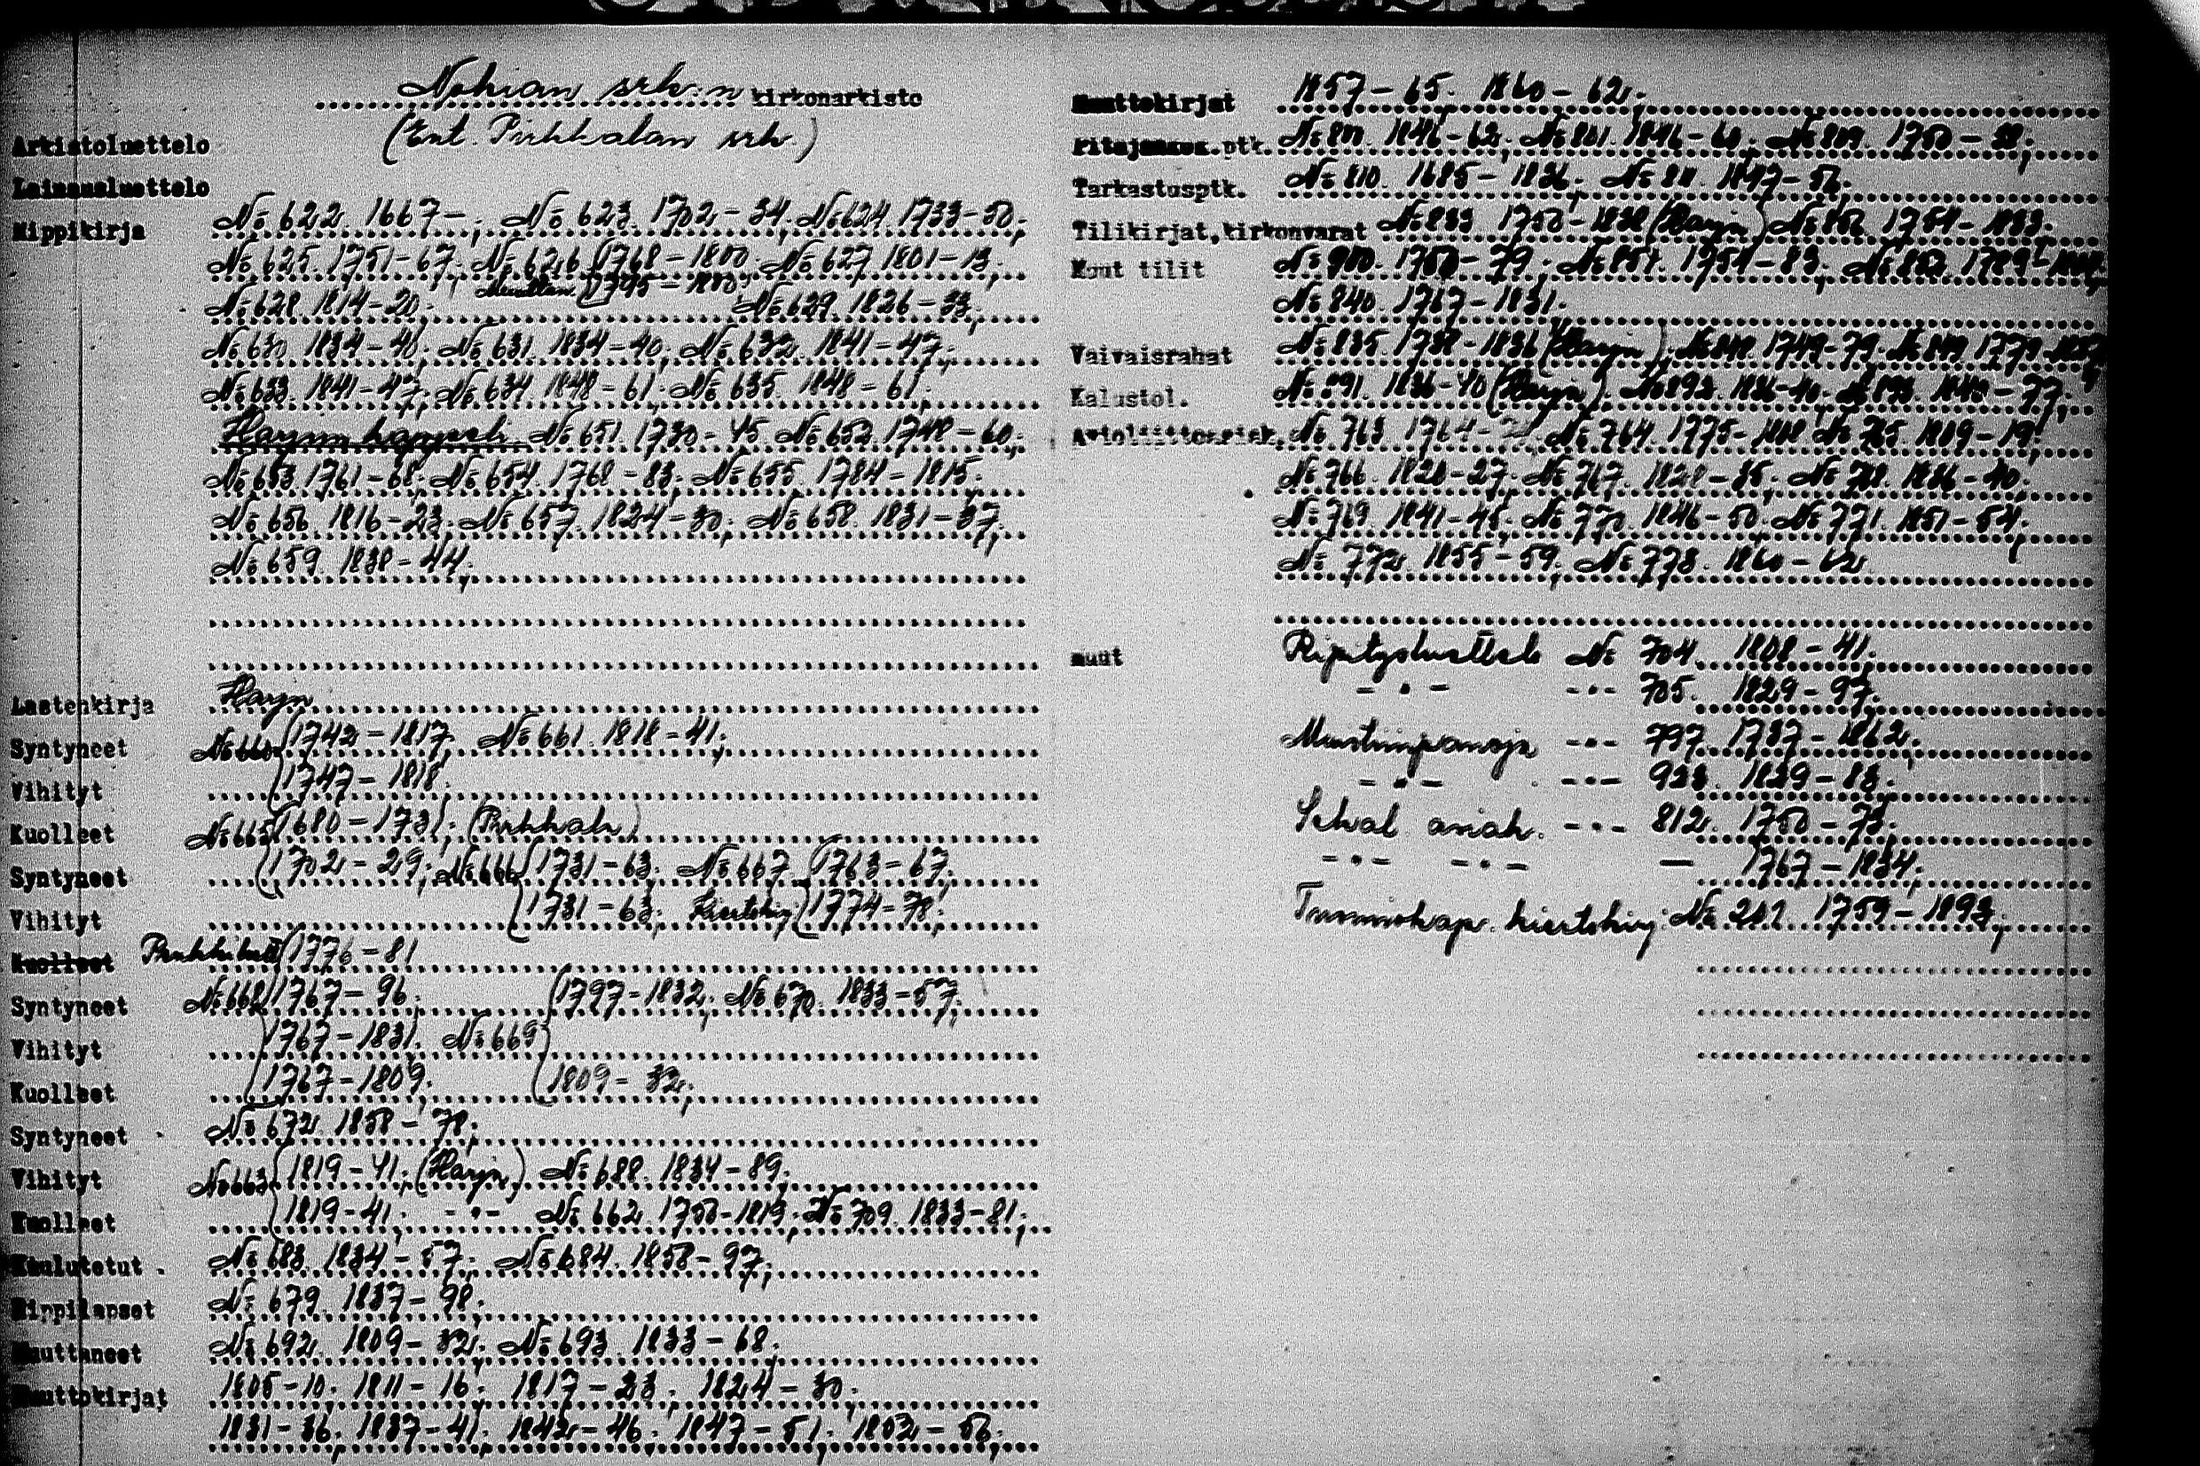 Nokian srk:n kirkonarkisto
(Ent. Pirkkalan srk.)
Arkistoluettelo
Lainausluettelo
Rippikirja № 622. 1667-; № 623. 1702-34; № 624. 1733-50;
№ 625. 1751-67; № 626 {1768-1800; № 627. 1801-13;
{1795-1800;
№ 628. 1814-20; № 629. 1826-33;
№ 630. 1834-40; № 631. 1834-40; № 632. 1841-47;
№ 633. 1841-47; № 634. 1848-61; № 635. 1848-61;
Harjun kappeli. № 651. 1730-45. № 652. 1748-60;
№ 653. 1761-68; № 654. 1768-83; № 655. 1784-1815;
№ 656. 1816-23; № 657. 1824-30; № 658. 1831-37;
№ 659. 1838-44;
Lastenkirja Harju
Syntyneet № 660 {1742-1817; № 661. 1818-41;
Vihityt {1747-1818.
Kuolleet № 665 {1680-1731; (Pirkkala)
Syntyneet {1702-29; № 666 {1731-63; № 667 {1763-67;
Vihityt {1731-63; Kiertokirj. {1774-78;
Kuolleet {1776-81
Syntyneet № 668 {1767-96; {1797-1832; № 670. 1833-57;
Vihityt {1767-1831. № 669
Kuolleet {1767-1809; {1809-32;
Syntyneet № 672. 1858-78;
Vihityt № 663 {1819-41; (Harju) № 688. 1834-89;
Kuolleet {1819-41; -"- № 662. 1750-1819; № 709. 1833-81;
Kuulutetut № 683. 1834-57; № 684. 1858-97;
Rippilapset № 679. 1837-98;
Muuttaneet № 692. 1809-32; № 693. 1833-68;
Muuttokirjat 1805-10; 1811-16; 1817-23; 1824-30;
1831-36; 1837-41; 1842-46; 1847-51; 1852-56;
Muuttokirjat 1857-65; 1860-62;
Pitäjänkok.ptk. № 800. 1846-62; № 801. 1846-60; № 809. 1750-
Tarkastusptk. № 810. 1685-1836; № 811. 1847-56;
Tilikirjat,kirkonvarat № 833. 1750-1838 (Harju) 1751-1833;
Muut tilit № 900. 1750-79; № 851. 1751-83;
№ 840. 1767-1831.
Vaivaisrahat № 835. 1738-1836 (Harju). 1749-79.
Kalustol. № 891. 1836-40 (Harju).
Avioliittoesteet. № 763. 1764- № 764. 1775- № 765. 1809-19;
№ 766. 1820-27; № 767. 1828-35; № 768. 1836-40;
№ 769. 1841-45; № 770. 1846-50; № 771. 1851-54;
№ 772. 1855-59; № 773. 1860-62
muut Ripitysluettelo № 704. 1808-41.
-"- -"- 705. 1829-97.
Muistiinpanoja -"- 797. 1787-1862;
-"- -"- 923. 1839-83.
Sekal. asiak. -"- 812. 1750-73.
-"- -"- — 1767-1834;
Tuomiokap. kiertokirj. № 201. 1759-1893;